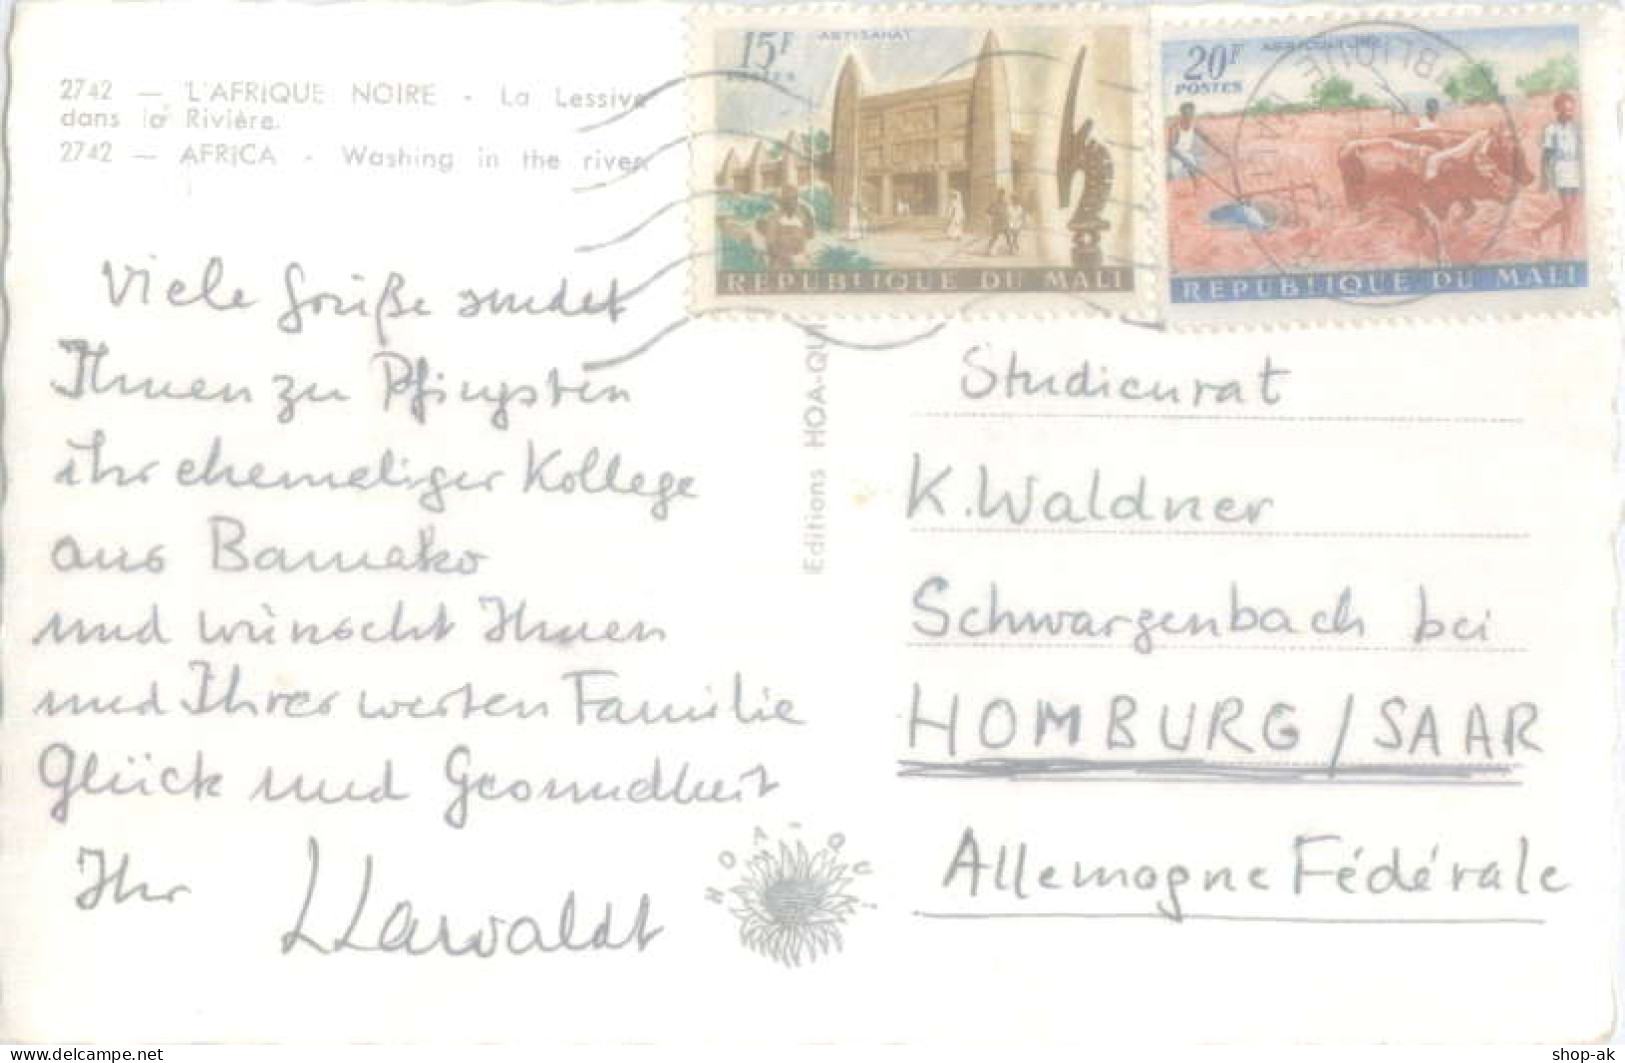 2742 — L'AFRIQUE NOIRE - La Lessive
dans la Rivière.
2742 — AFRICA - Washing in the river
Viele Grüße sendet
Ihnen zu Pfingsten
ihr ehemaliger Kollege
aus Bamako
und wünscht Ihnen
und Ihrer werten Familie
Glück und Gesundheit
Ihr
Editions HOA-QUI
HOA-QUI
15F
POSTES
ARTISANAT
REPUBLIQUE DU MALI
20F
POSTES
AGRICULTURE
REPUBLIQUE DU MALI
Studienrat
K. Waldner
Schwarzenbach bei
HOMBURG / SAAR
Allemagne Fédérale
shop-ak